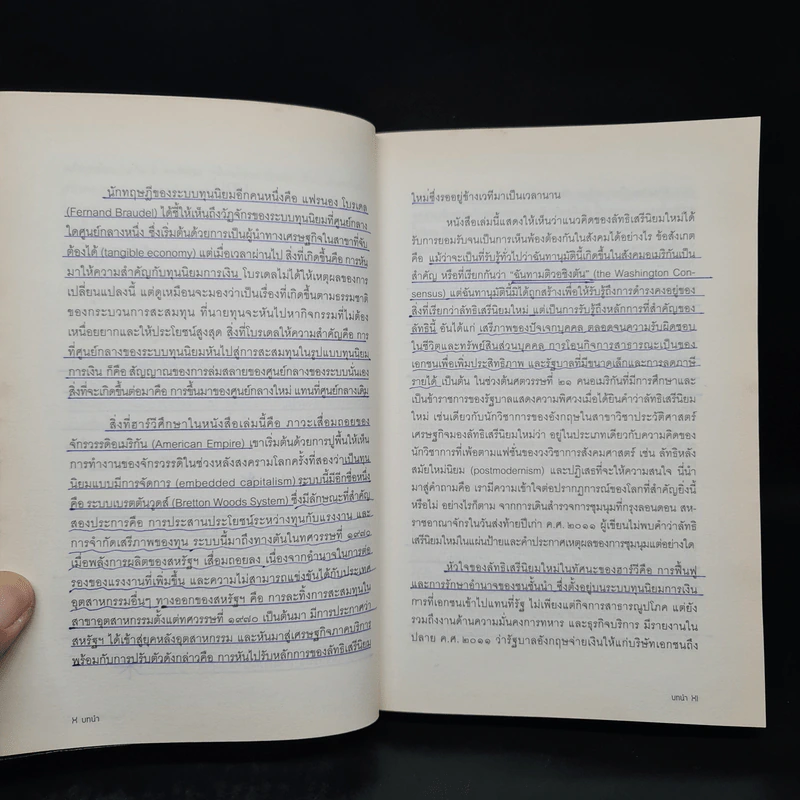 นักทฤษฎีของระบบทุนนิยมอีกคนหนึ่งคือ แฟรนอง โบรเดล
(Fernand Braudel) ได้ชี้ให้เห็นถึงวัฏจักรของระบบทุนนิยมที่ศูนย์กลาง
ใดศูนย์กลางหนึ่ง ซึ่งเริ่มต้นด้วยการเป็นผู้นำทางเศรษฐกิจในสาขาที่จับ
ต้องได้ (tangible economy) แต่เมื่อเวลาผ่านไป สิ่งที่เกิดขึ้นคือ การหัน
มาให้ความสำคัญกับทุนนิยมการเงิน โบรเดลไม่ได้ให้เหตุผลของการ
เปลี่ยนแปลงนี้ แต่ดูเหมือนจะมองว่าเป็นเรื่องที่เกิดขึ้นตามธรรมชาติ
ของกระบวนการสะสมทุน ที่นายทุนจะหันไปหากิจกรรมที่ไม่ต้อง
เหนื่อยยากและให้ประโยชน์สูงสุด สิ่งที่โบรเดลให้ความสำคัญคือ การ
ที่ศูนย์กลางของระบบทุนนิยมหันไปสู่การสะสมทุนในรูปแบบทุนนิยม
การเงิน ก็คือ สัญญาณของการล่มสลายของศูนย์กลางของระบบนั่นเอง
สิ่งที่จะเกิดขึ้นต่อมาคือ การขึ้นมาของศูนย์กลางใหม่ แทนที่ศูนย์กลางเดิม
สิ่งที่ฮาร์วีศึกษาในหนังสือเล่มนี้คือ ภาวะเสื่อมถอยของ
จักรวรรดิอเมริกัน (American Empire) เขาเริ่มต้นด้วยการปูพื้นให้เห็น
การทำงานของจักรวรรดิในช่วงหลังสงครามโลกครั้งที่สองว่าเป็นทุน
นิยมแบบมีการจัดการ (embedded capitalism) ระบบนี้มีอีกชื่อหนึ่ง
คือ ระบบเบรตตันวูดส์ (Bretton Woods System) ซึ่งมีลักษณะที่สำคัญ
สองประการคือ การประสานประโยชน์ระหว่างทุนกับแรงงาน และ
การจำกัดเสรีภาพของทุน ระบบนี้มาถึงทางตันในทศวรรษที่ ๑๙๗๐
เมื่อพลังการผลิตของสหรัฐฯ เสื่อมถอยลง เนื่องจากอำนาจในการต่อ
รองของแรงงานที่เพิ่มขึ้น และความไม่สามารถแข่งขันได้กับประเทศ
อุตสาหกรรมอื่นๆ ทางออกของสหรัฐฯ คือ การละทิ้งการสะสมทุนใน
สาขาอุตสาหกรรมตั้งแต่ทศวรรษที่ ๑๙๘๐ เป็นต้นมา มีการประกาศว่า
สหรัฐฯ ได้เข้าสู่ยุคหลังอุตสาหกรรม และหันมาสู่เศรษฐกิจภาคบริการ
พร้อมกับการปรับตัวดังกล่าวคือ การหันไปรับหลักการของลัทธิเสรีนิยม
X บทนำ
ใหม่ซึ่งรออยู่ข้างเวทีมาเป็นเวลานาน
หนังสือเล่มนี้แสดงให้เห็นว่าแนวคิดของลัทธิเสรีนิยมใหม่ได้
รับการยอมรับจนเป็นการเห็นพ้องต้องกันในสังคมได้อย่างไร ข้อสังเกต
คือ แม้ว่าจะเป็นที่รับรู้ทั่วไปว่าฉันทานุมัตินี้เกิดขึ้นในสังคมอเมริกันเป็น
สำคัญ หรือที่เรียกกันว่า "ฉันทามติวอชิงตัน" (the Washington Con-
sensus) แต่ฉันทานุมัตินี้มิได้ถูกสร้างเพื่อให้รับรู้ถึงการดำรงคงอยู่ของ
สิ่งที่เรียกว่าลัทธิเสรีนิยมใหม่ แต่เป็นการรับรู้ถึงหลักการที่สำคัญของ
ลัทธินี้ อันได้แก่ เสรีภาพของปัจเจกบุคคล ตลอดจนความรับผิดชอบ
ในชีวิตและทรัพย์สินส่วนบุคคล การโอนกิจการสาธารณะเป็นของ
เอกชนเพื่อเพิ่มประสิทธิภาพ และรัฐบาลที่มีขนาดเล็กและการลดภาษี
รายได้ เป็นต้น ในช่วงต้นศตวรรษที่ ๒๑ คนอเมริกันที่มีการศึกษาและ
เป็นข้าราชการของรัฐบาลแสดงความพิศวงเมื่อได้ยินคำว่าลัทธิเสรีนิยม
ใหม่ เช่นเดียวกับนักวิชาการของอังกฤษในสาขาวิชาประวัติศาสตร์
เศรษฐกิจมองลัทธิเสรีนิยมใหม่ว่า อยู่ในประเภทเดียวกับความคิดของ
นักวิชาการที่เพ้อตามแฟชั่นของวงวิชาการสังคมศาสตร์ เช่น ลัทธิหลัง
สมัยใหม่นิยม (postmodernism) และปฏิเสธที่จะให้ความสนใจ นี่นำ
มาสู่คำถามคือ เรามีความเข้าใจต่อปรากฏการณ์ของโลกที่สำคัญยิ่งนี้
หรือไม่ อย่างไรก็ตาม จากการเดินสำรวจการชุมนุมที่กรุงลอนดอน สห-
ราชอาณาจักรในวันส่งท้ายปีเก่า ค.ศ. ๒๐๑๑ ผู้เขียนไม่พบคำว่าลัทธิ
เสรีนิยมใหม่ในแผ่นป้ายและคำประกาศเหตุผลของการชุมนุมแต่อย่างใด
หัวใจของลัทธิเสรีนิยมใหม่ในทัศนะของฮาร์วีคือ การฟื้นฟู
และการรักษาอำนาจของชนชั้นนำ ซึ่งตั้งอยู่บนระบบทุนนิยมการเงิน
การที่เอกชนเข้าไปแทนที่รัฐ ไม่เพียงแต่กิจการสาธารณูปโภค แต่ยัง
รวมถึงงานด้านความมั่นคงการทหาร และธุรกิจบริการ มีรายงานใน
ปลาย ค.ศ. ๒๐๑๑ ว่ารัฐบาลอังกฤษจ่ายเงินให้แก่บริษัทเอกชนถึง
บทนำ XI